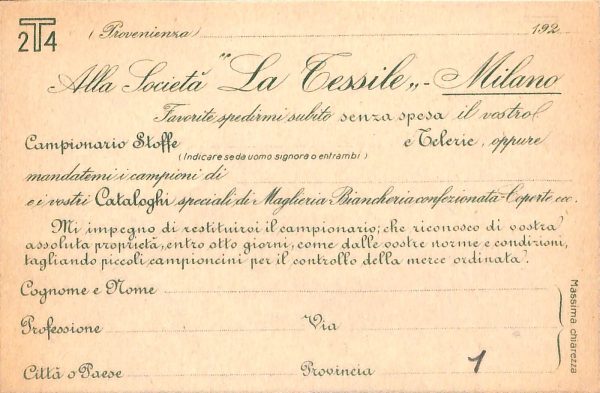 2T4
(Provenienza) 192
Alla Società "La Tessile„ - Milano
Favorite spedirmi subito senza spesa il vostro
Campionario Stoffe e Telerie, oppure
(Indicare se da uomo signora o entrambi)
mandatemi i campioni di
e i vostri Cataloghi speciali di Maglieria Biancheria confezionata - Coperte ecc.
Mi impegno di restituirvi il campionario, che riconosco di vostra
assoluta proprietà, entro otto giorni, come dalle vostre norme e condizioni,
tagliando piccoli campioncini per il controllo della merce ordinata.
Cognome e Nome
Professione Via
Città o Paese Provincia 1
Massima chiarezza